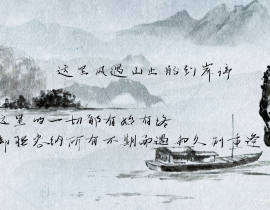 这里风遇山止船到岸停
这里的一切都有始有终
却能容纳所有不期而遇和久别重逢